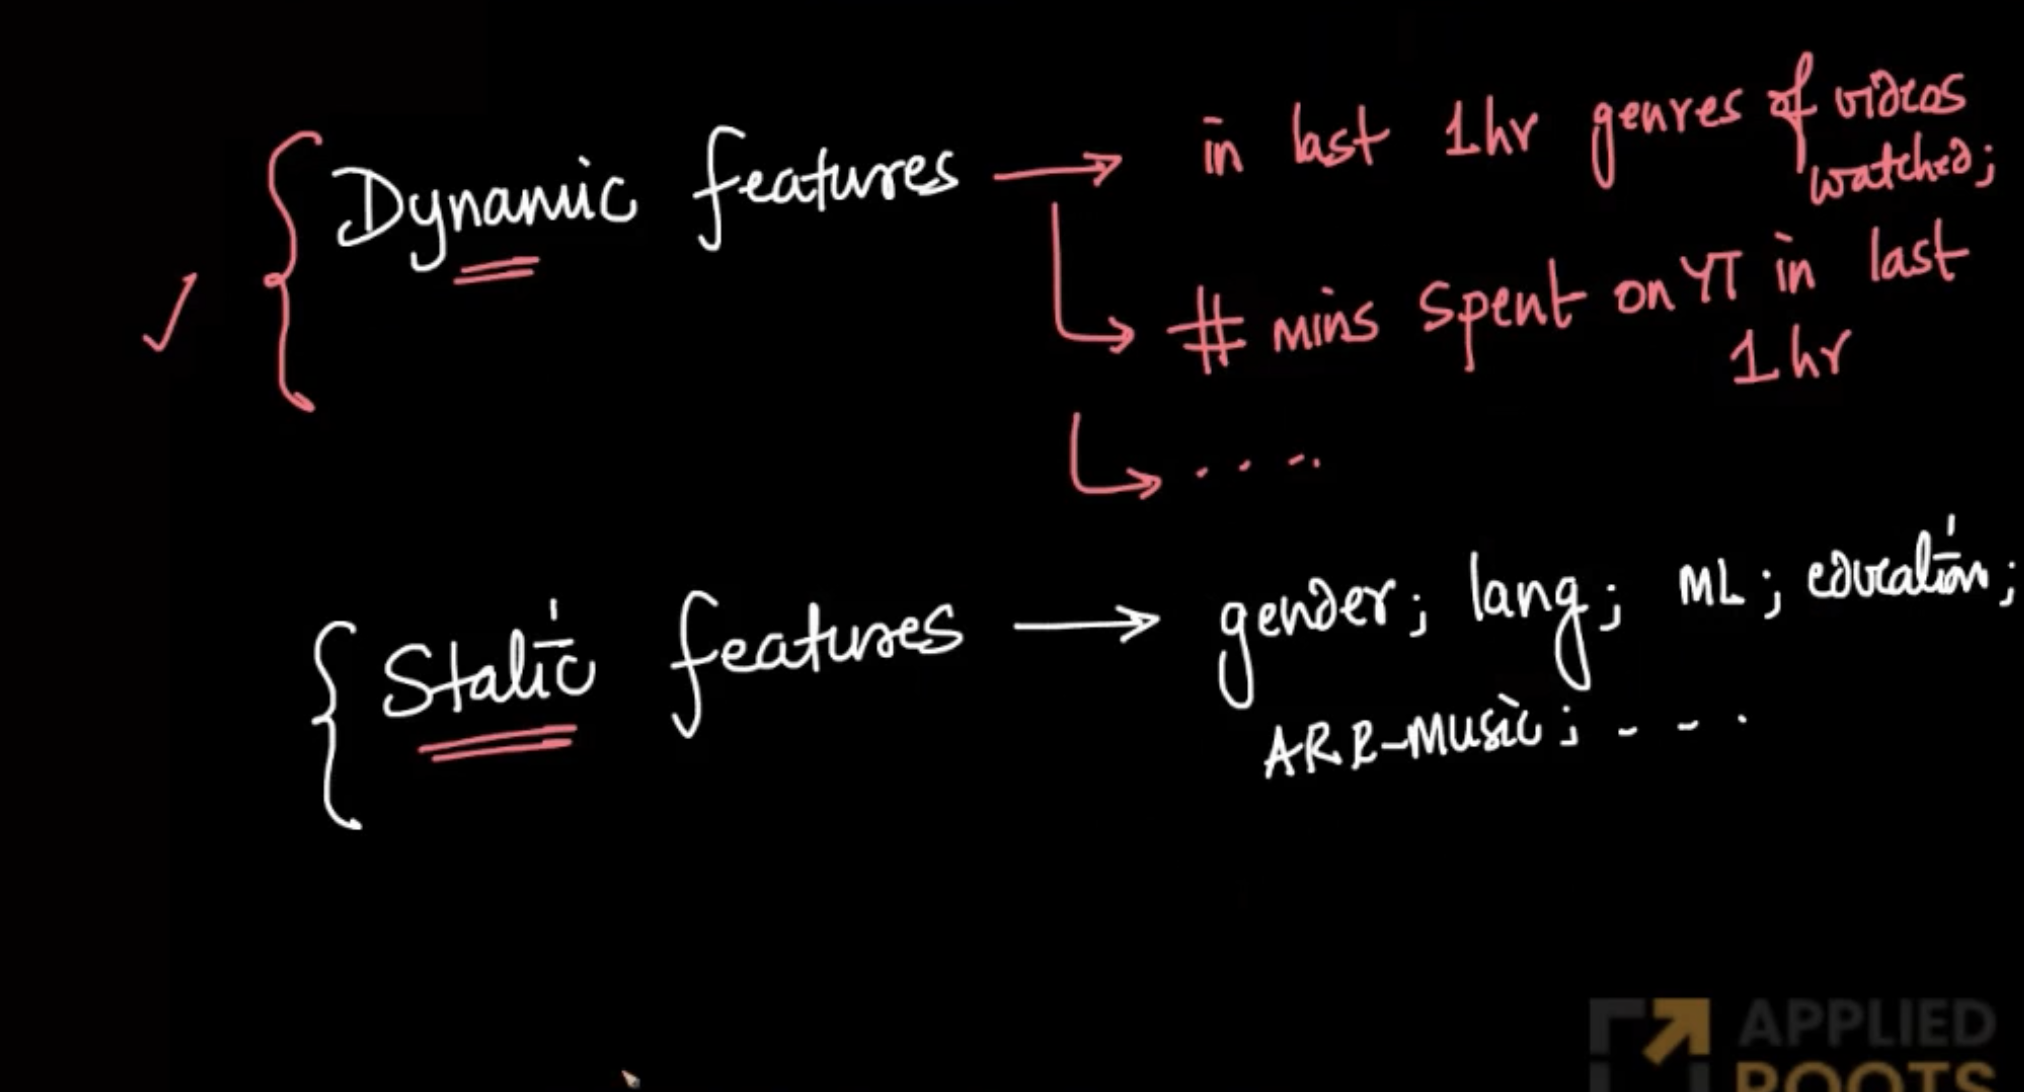 Dynamic features → in last 1hr genres of videos
watched;
# mins spent on YT in last
1hr
....
Static features → gender; lang; ML; education;
ARR-Music; - - .
APPLIED
ROOTS